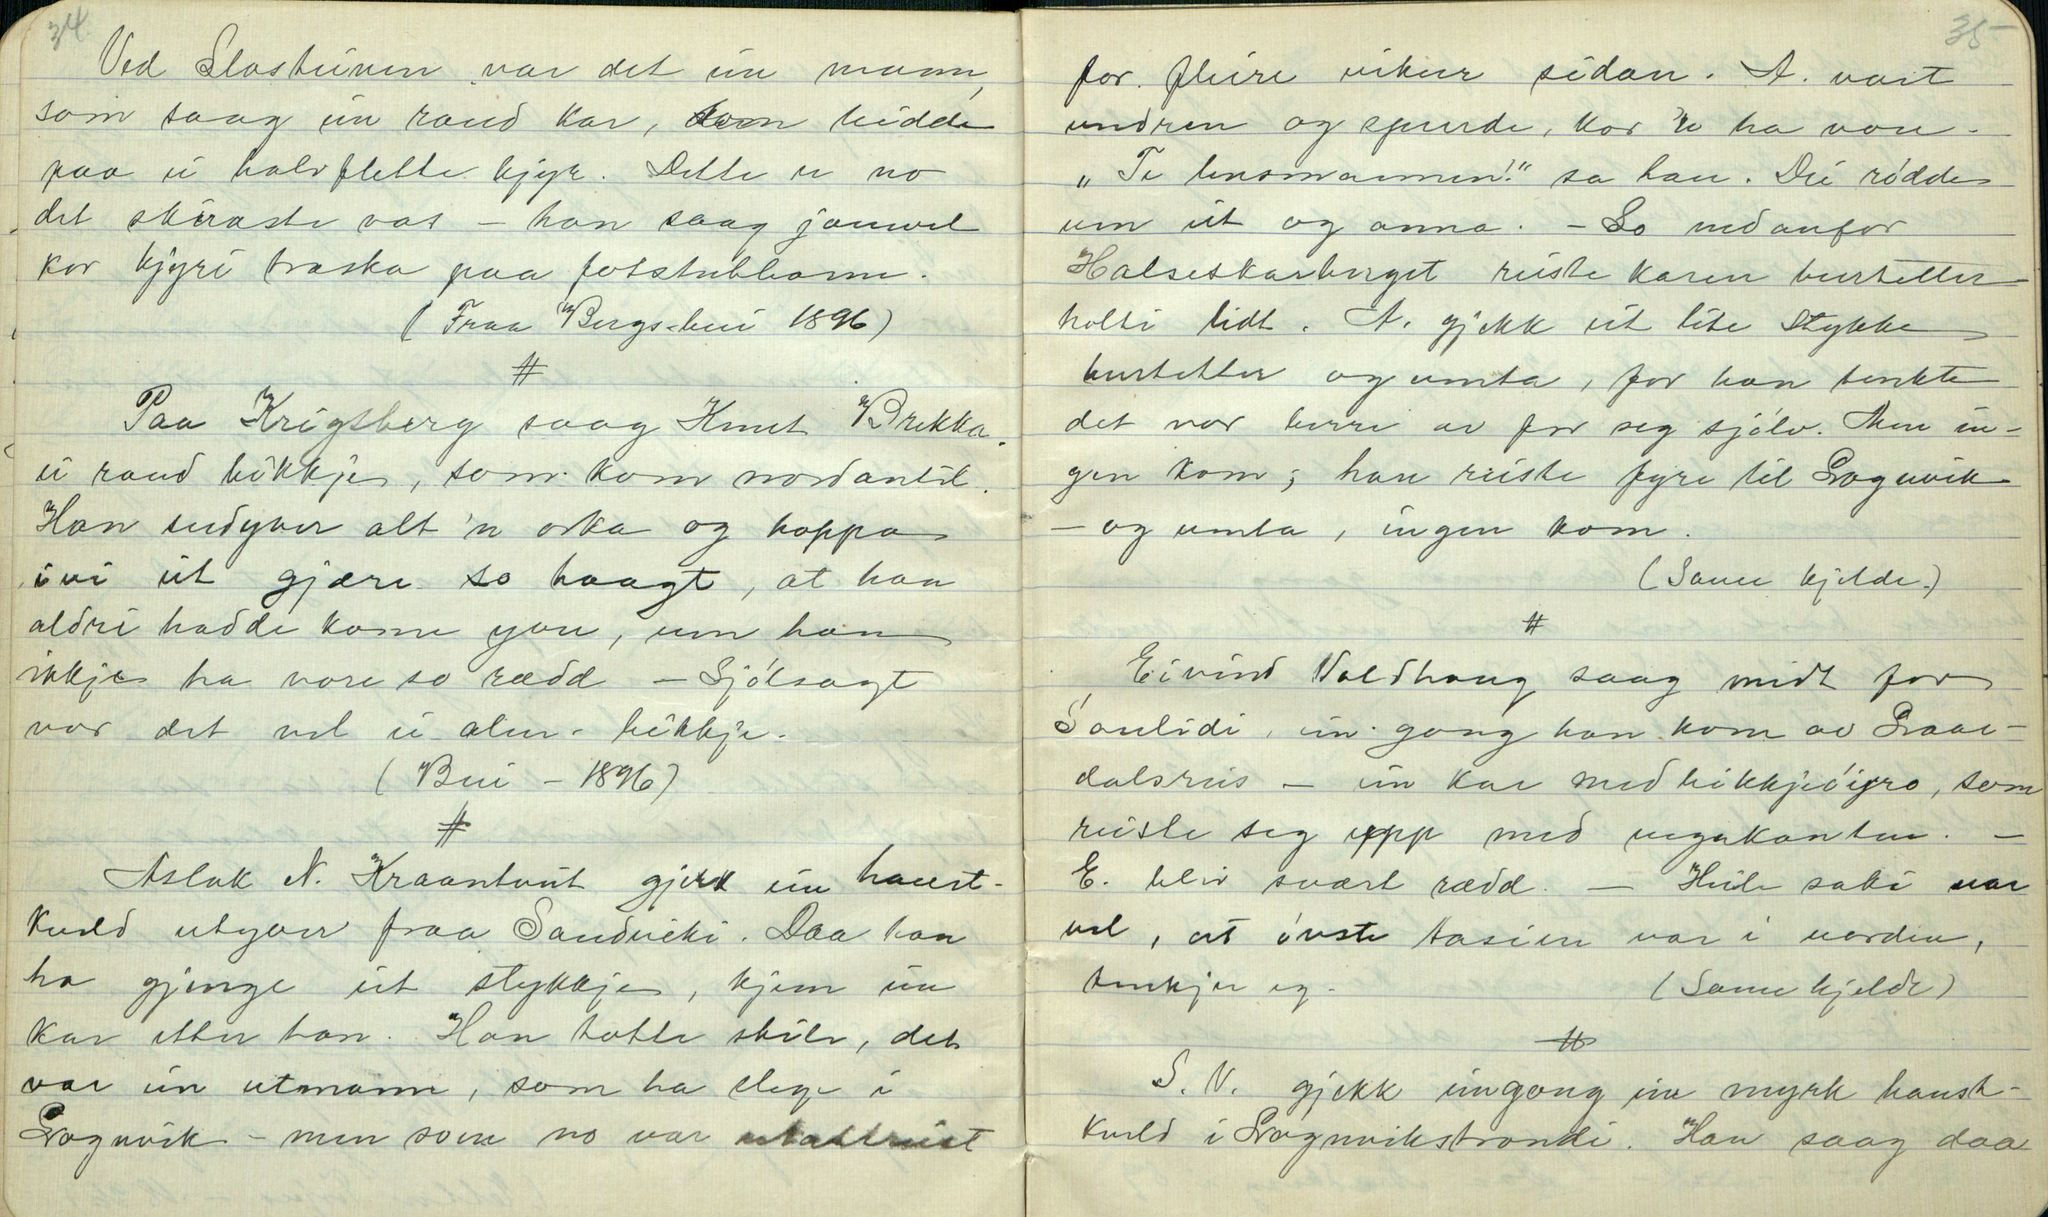 34.
Ved Slosteinen var det ein mann,
som saag ein raud kar, som reidde
paa ei halvflette kjyr. Dette er no
det skiraste vas – han saag jamvel
kor kjyri traska paa fotstubbann.
(Fraa Bergs-bui 1896)
#
Paa Krigsberg saag Knut Brekka.
ei raud bikkje, som kom nordantil.
Han sudyver alt 'n orka og hoppa
ivi eit gjære so haagt, at han
aldri hadde kome yve, um han
ikkje ha vore so rædd – Sjólsagt
var det vel ei alm. bikkje.
(Bui – 1896)
#
Aslak N. Kraantveit gjekk ein haust-
kveld utyver fraa Sandviki. Daa han
ha gjenge eit stykkje, kjem ein
kar etter han. Han totte skile, det
var ein utmann, som ha lege i
Rognvik – men som no var
35
for fleire vikur sidan. A. vart
undren og spurde, kor 'n ha vore.
"Te lensmannen!" sa han. Dei rødde
um eit og anna. – So nedanfor
Halseskarberget reiste karen burtetter
holti lidt. A. gjekk eit lite stykke
burtetter og umla, for han tenkte
det var berre av for seg sjólv. Men in-
gen kom; han reiste fyre til Rognvik
– og umla, ingen kom.
(Same kjelde.)
#
Eivind Valdhaug saag midt for
Saulidi, ein gong han kom av Raau-
dalsreis – ein kar med bikkjeóigro, som
reiste seg upp med vegakanten. –
E. blir svært rædd. – Heile saki var
vel, at óvste tasien var i uordin,
tenkjer eg.
(Same kjelde)
#
S. V. gjekk eingong ein myrk haust-
kveld i Rognvikstrondi. Han saag daa